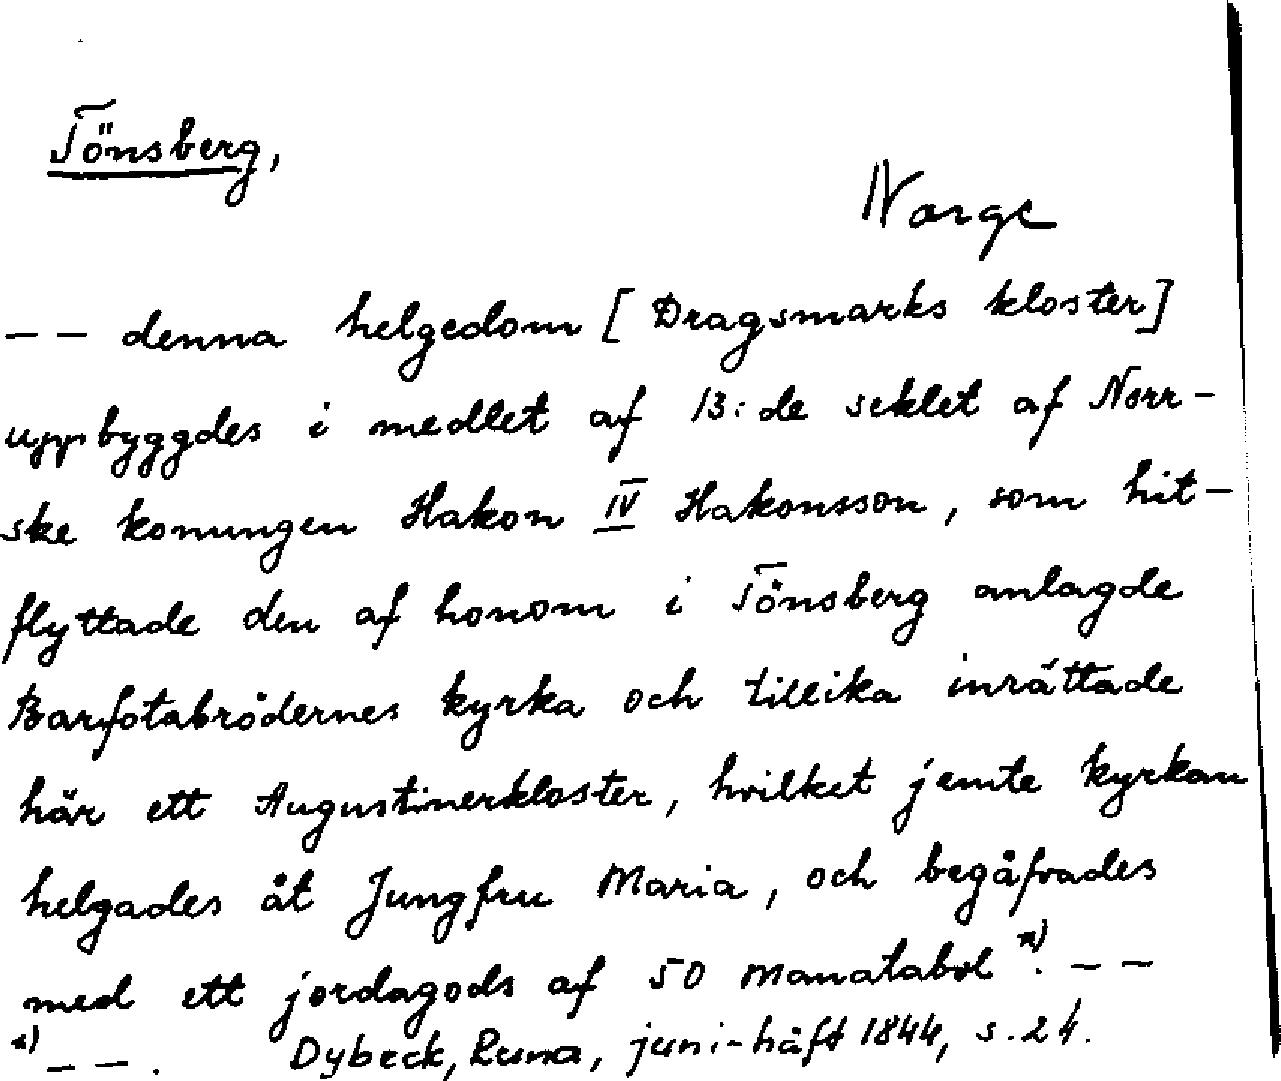 Tönsberg,
Norge
-- denna helgedom [Dragsmarks kloster]
uppbyggdes i medlet af 13:de seklet af Norr-
ske konungen Hakon IV Hakonsson, som hit-
flyttade den af honom i Tönsberg anlagde
Barfotabrödernes kyrka och tillika inrättade
här ett Augustinerkloster, hvilket jemte kyrkan
helgades åt Jungfru Maria, och begåfvades
med ett jordagods af 50 Manatabol x). --
x) -- . Dybeck, Runa, juni-häft 1844, s. 24.